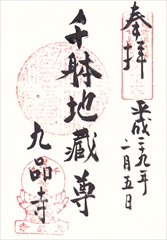 奉拝
平成二九年
二月五日
千躰地蔵尊
九品寺